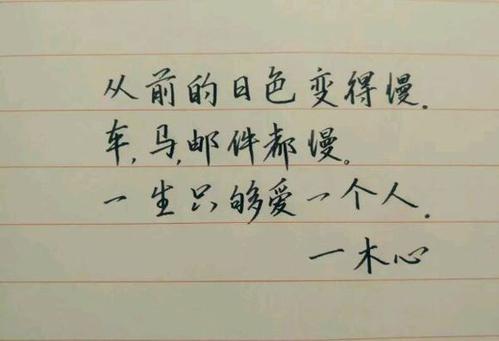 从前的日色变得慢.
车,马,邮件都慢。
一生只够爱一个人.
一木心